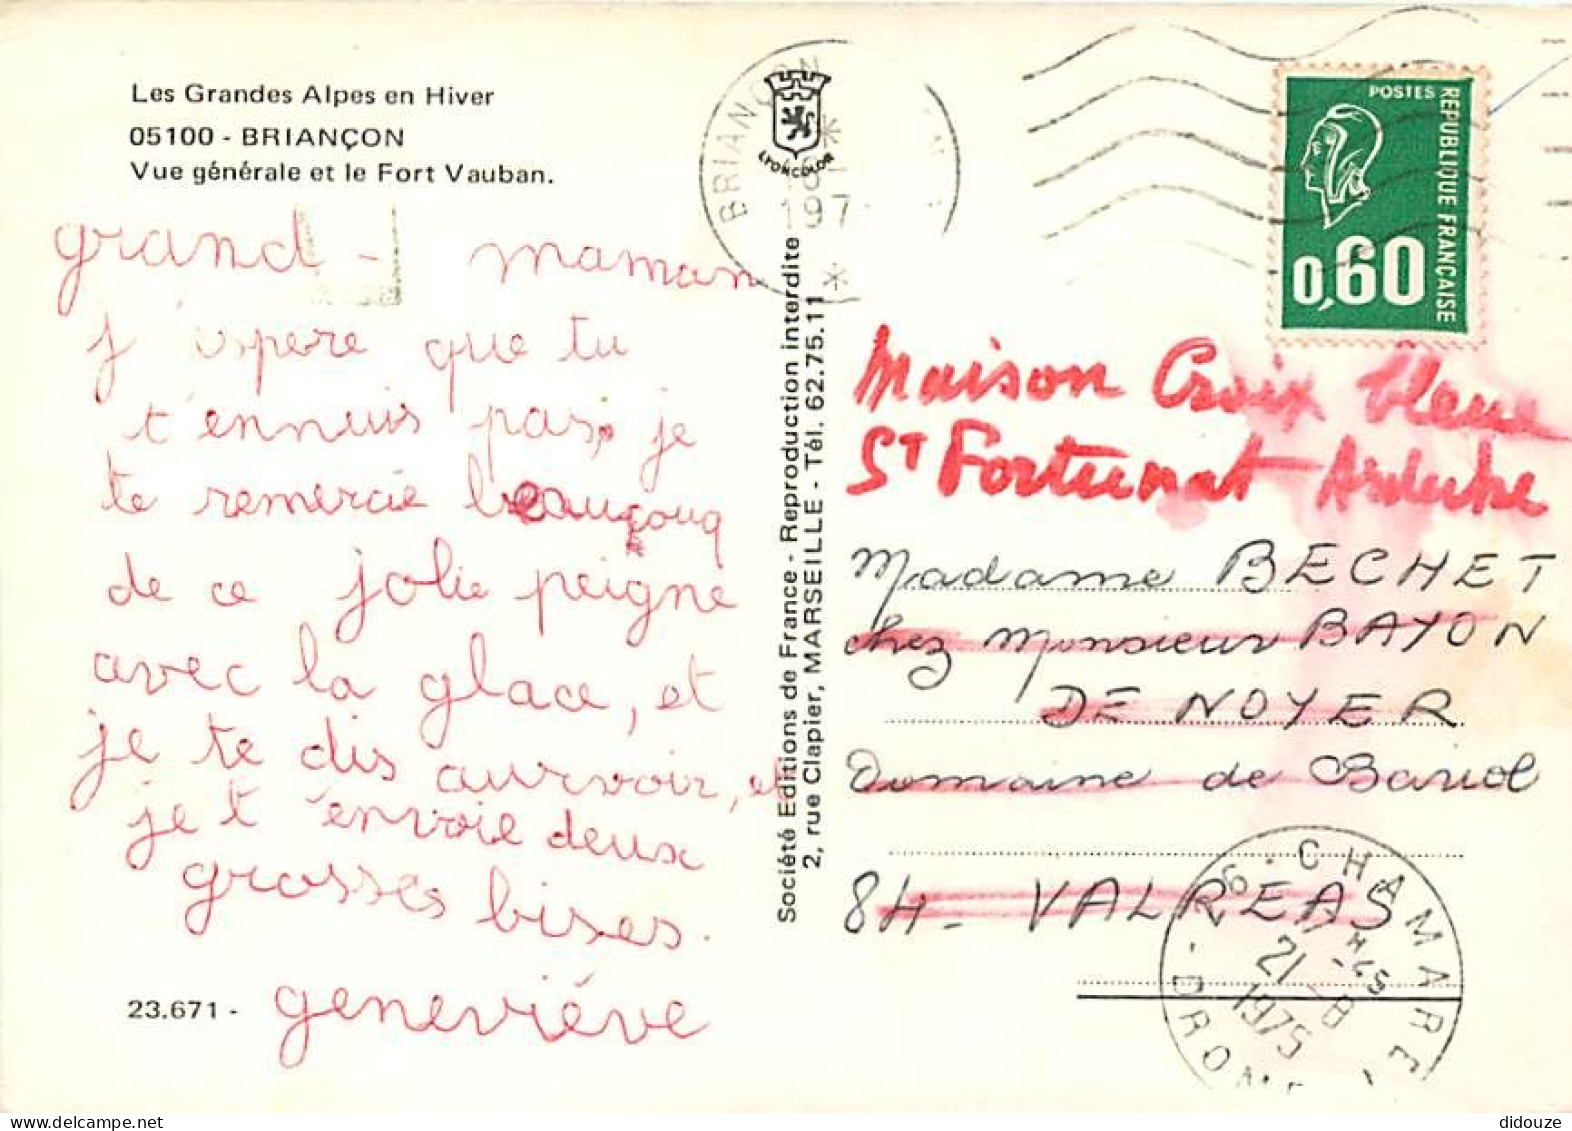 Les Grandes Alpes en Hiver
05100 - BRIANÇON
Vue générale et le Fort Vauban.
grand - maman
j'espere que tu
t'ennuis pas, je
te remercie beaucoup
de ce jolie peigne
avec la glace, et
je te dis aurvoir, et
je t'envoie deux
grosses bises.
geneviéve
23.671 -
BRIANÇON
197
LYONCOLOR
Société Editions de France - Reproduction interdite
2, rue Clapier, MARSEILLE - Tél. 62.75.11
POSTES
REPUBLIQUE FRANÇAISE
0,60
Maison Croix bleue
St Fortunat Ardeche
Madame BECHET
chez Monsieur BAYON
DE NOYER
Domaine de Bariol
84 - VALREAS
26 - CHAMARET
DROME
21 - 8
1975
didouze